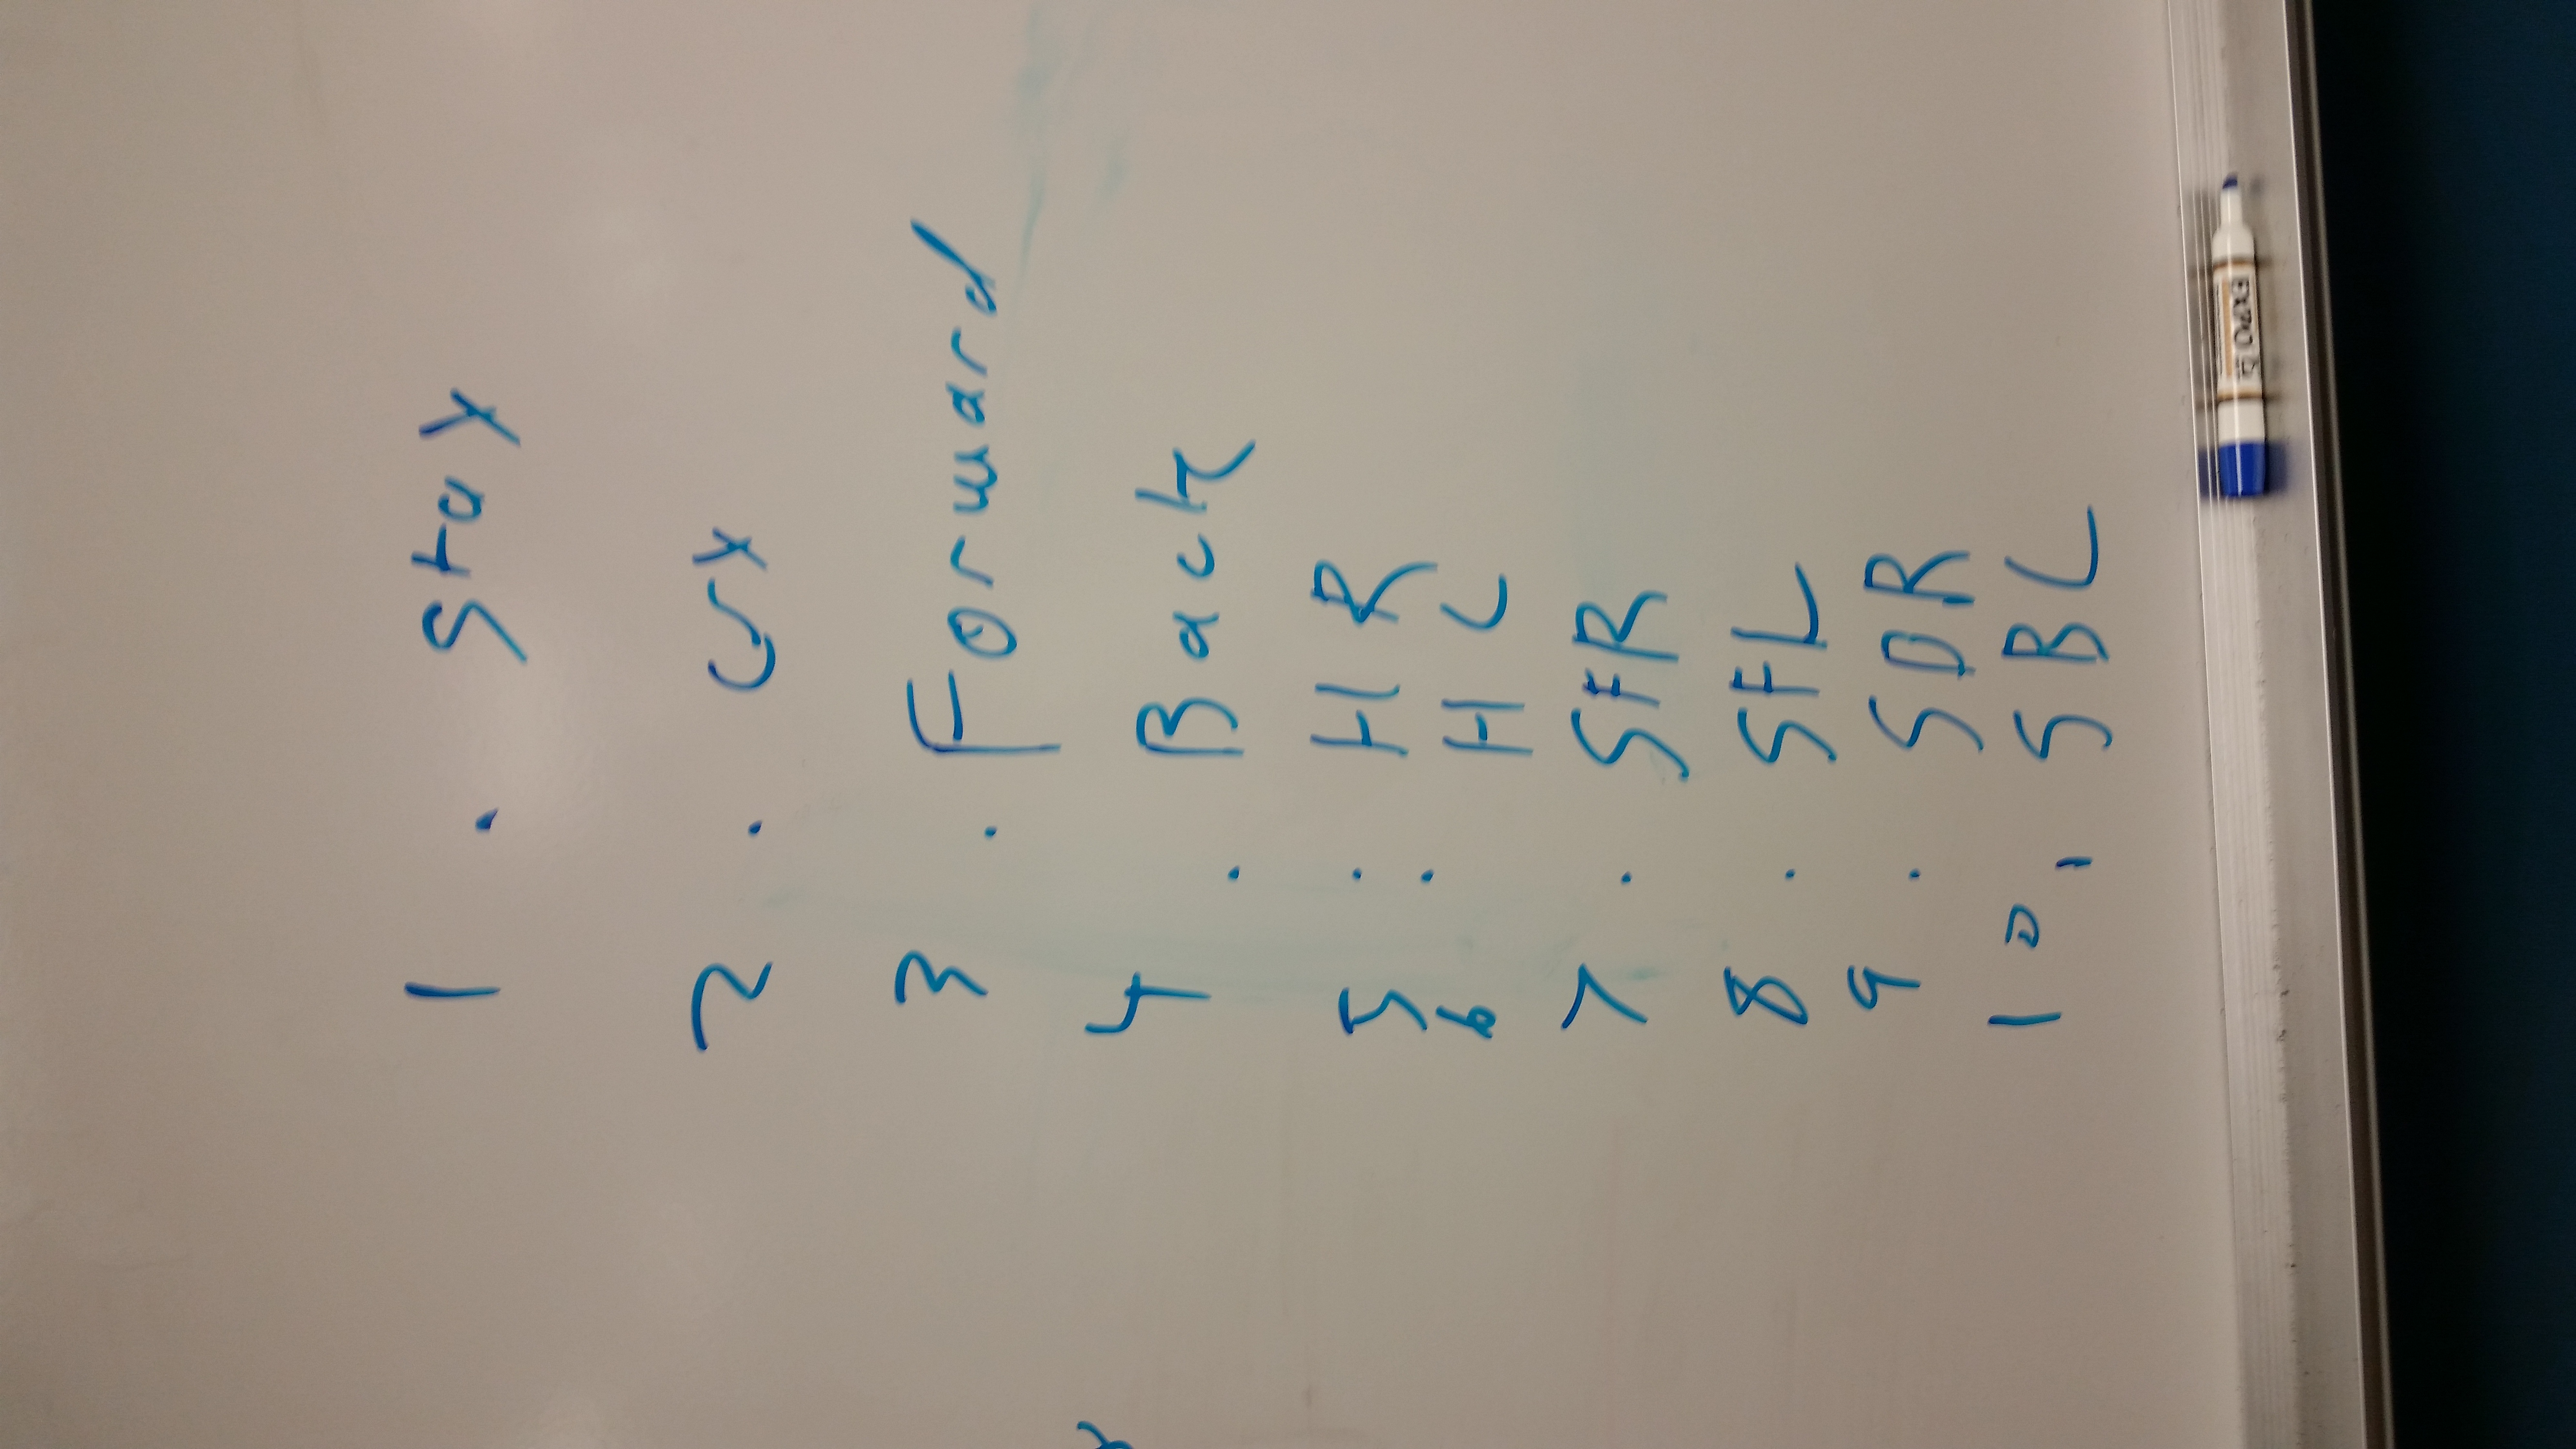 1. Stay
2. Cry
3. Forward
4. Back
5. HR
6. HL
7. SFR
8. SFL
9. SDR
10. SBL
EXPO